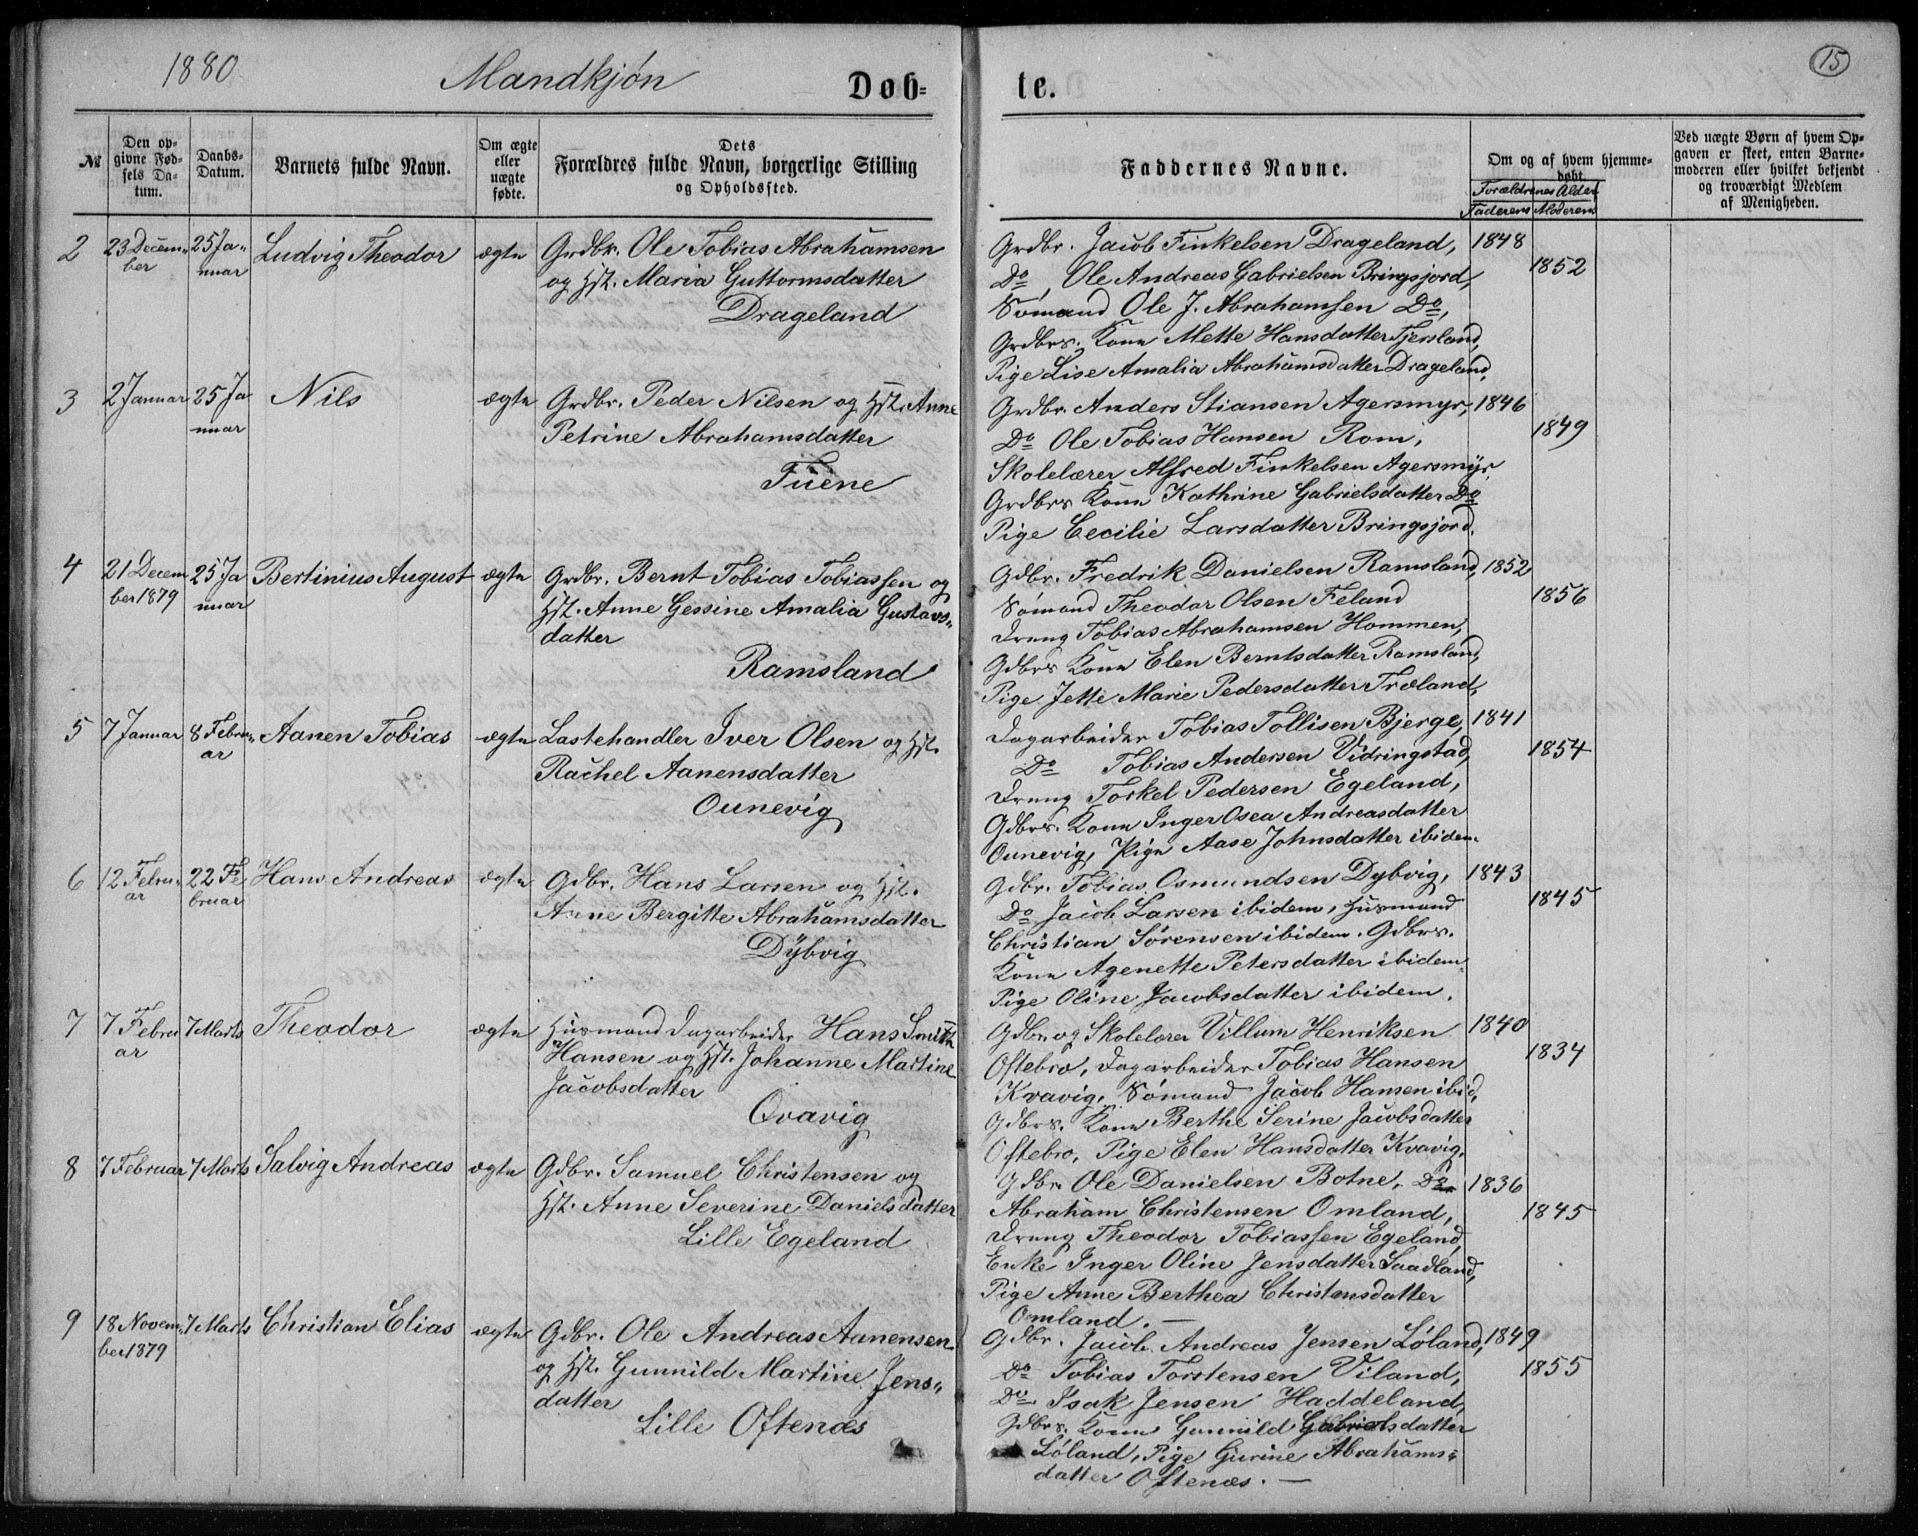 1880
Mandkjøn
Døb-
te.
15
№
Den op-
givne Fød-
sels Da-
tum.
Daabs-
Datum.
Barnets fulde Navn.
Om ægte
eller
uægte
fødte.
Dets
Forældres fulde Navn, borgerlige Stilling
og Opholdssted.
Faddernes Navne.
Om og af hvem hjemme-
døbt.
Forældrenes Alder.
Faderens Moderens
Ved uægte Børn af hvem Op-
gaven er skeet, enten Barne-
moderen eller hvilket bekjendt
og troværdigt Medlem
af Menigheden.
2
23 Decem-
ber
25 Ja-
nuar
Ludvig Theodor
ægte
Grdbr. Ole Tobias Abrahamsen
og Hst. Maria Guttormsdatter
Drageland
Grdbr. Jacob Finkelsen Drageland,
Do, Ole Andreas Gabrielsen Bringsjord,
Sømand Ole J. Abrahamsen Do,
Grdbrs. Kone Mette Hansdatter Fjersland,
Pige Lise Amalia Abrahamsdatter Drageland,
1848
1852
3
2 Januar
25 Ja
nuar
Nils
ægte
Grdbr. Peder Nilsen og Hst. Anne
Petrine Abrahamsdatter
Tuene
Grdbr. Anders Stiansen Agersmyr,
Do Ole Tobias Hansen Rom,
Skolelærer Alfred Finkelsen Agersmyr,
Grdbrs Kone Kathrine Gabrielsdatter Do
Pige Cecilie Larsdatter Bringsjord.
1846
1849
4
21 Decem
ber 1879
25 Ja
nuar
Bertinius August
ægte
Grdbr. Bernt Tobias Tobiassen og
Hst. Anne Gessine Amalia Gustavs-
datter
Ramsland
Gdbr. Fredrik Danielsen Ramsland,
Sømand Theodor Olsen Feland
Dreng Tobias Abrahamsen Hommen,
Gdbrs Kone Elen Berntsdatter Ramsland,
Pige Jette Marie Pedersdatter Træland,
1852
1856
5
7 Januar
8 Febru-
ar
Aanen Tobias
ægte
Lastehandler Iver Olsen og Hst.
Rachel Aanensdatter
Ounevig
Dagarbeider Tobias Tollisen Bjerge,
Do Tobias Andersen Vidringstad,
Dreng Torkel Pedersen Egeland,
Gdbrs. Kone Inger Osea Andreasdatter
Ounevig, Pige Aase Johnsdatter ibidem.
1841
1854
6
12 Febru-
ar
22 Fe
bruar
Hans Andreas
ægte
Gdbr. Hans Larsen og Hst.
Anne Bergitte Abrahamsdatter
Dybvig
Gdbr. Tobias Osmundsen Dybvig,
Do Jacob Larsen ibidem, Husmand
Christian Sørensen ibidem. Gdbrs.
Kone Agenette Petersdatter ibidem.
Pige Oline Jacobsdatter ibidem.
1843
1845
7
7 Febru
ar
7 Marts
Theodor
ægte
Husmand Dagarbeider Hans Smith
Hansen og Hst. Johanne Martine
Jacobsdatter
Qvavig
Gdbr. og Skolelærer Villum Henriksen
Oftebro, Dagarbeider Tobias Hansen
Kvavig, Sømand Jacob Hansen ibid,
Gdbrs. Kone Berthe Serine Jacobsdatter
Oftebro, Pige Elen Hansdatter Kvavig.
1840
1834
8
7 Februar
7 Marts
Salvig Andreas
ægte
Gdbr. Samuel Christensen og
Hst. Anne Severine Danielsdatter
Lille Egeland
Gdbr. Ole Danielsen Botne, Do
Abraham Christensen Omland,
Dreng Theodor Tobiassen Egeland,
Enke Inger Oline Jensdatter Saadland,
Pige Anne Berthea Christensdatter
Omland. —
1836
1845
9
18 Novem-
ber 1879
7 Marts
Christian Elias
ægte
Gdbr. Ole Andreas Aanensen
og Hst. Gunnild Martine Jens-
datter
Lille Oftenæs
Gdbr. Jacob Andreas Jensen Løland,
Do Tobias Torstensen Viland,
Do Isak Jensen Haddeland,
Gdbrs. Kone Gunnild Gabrielsdatter
Løland, Pige Gurine Abrahams-
datter Oftenæs. —
1849
1855